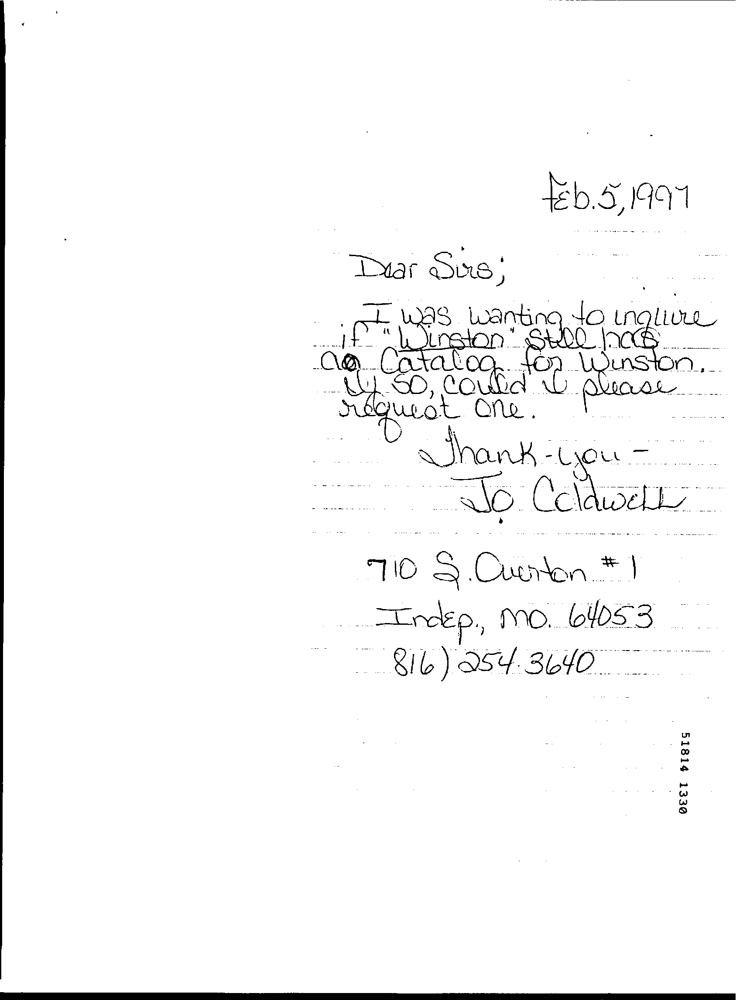 Feb. 5, 1997
Dear Sirs;
I was wanting to inquire
if "Winston" still has
a Catalog for Winston.
If so, could I please
request one.
Thank-you -
Jo Coldwell
710 S. Overton #1
Indep., MO. 64053
816) 254.3640
51814 1330